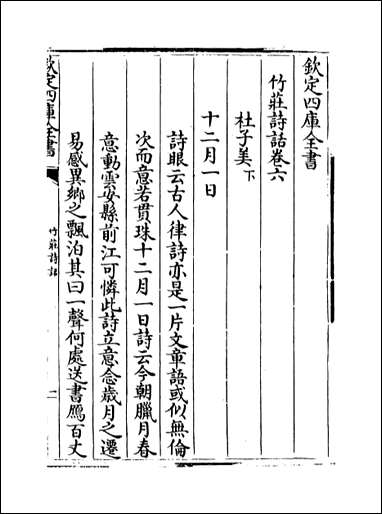 欽定四庫全書
竹莊詩話卷六
杜子美下
十二月一日
詩眼云古人律詩亦是一片文章語或似無倫
次而意若貫珠十二月一日詩云今朝臘月春
意動雲安縣前江可憐此詩立意念歲月之遷
易感異鄉之飄泊其曰一聲何處送書鴈百丈
欽定四庫全書
竹莊詩話